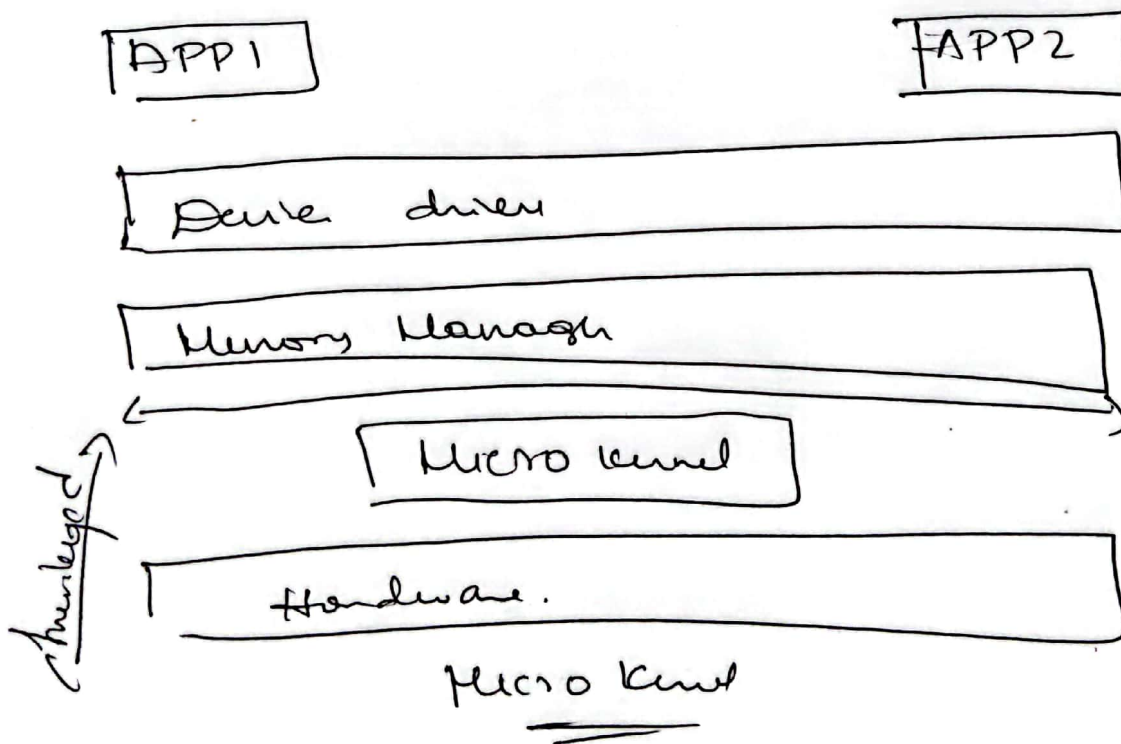 APP1 APP2
Device driver
Memory Manager
Micro kernel
Privileged
Hardware.
Micro Kernel